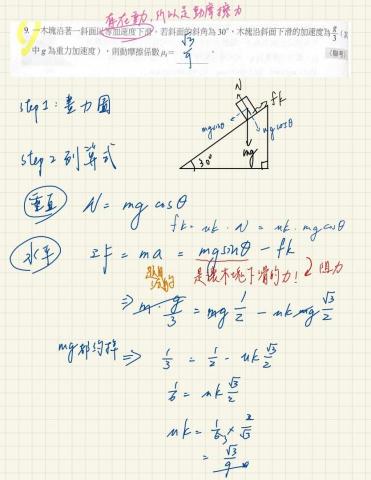 有在動，所以是動摩擦力
9. 一木塊沿著一斜面以等加速度下滑，若斜面的斜角為 30°，木塊沿斜面下滑的加速度為 g/3（其
中 g 為重力加速度），則動摩擦係數 μₖ= √3/9 。
step 1：畫力圖
N
fk
mg sinθ
mg cosθ
mg
30°
step 2 列算式
垂直 N = mg cosθ
fk = uk · N = uk · mg cosθ
水平 Σf = ma = mg sinθ - fk
是讓木塊下滑的力！ 阻力
⇒ m · g/3 = mg 1/2 - uk mg √3/2
mg都約掉 ⇒ 1/3 = 1/2 - uk √3/2
1/6 = uk √3/2
uk = 1/6 3 × 2/√3
= √3/9